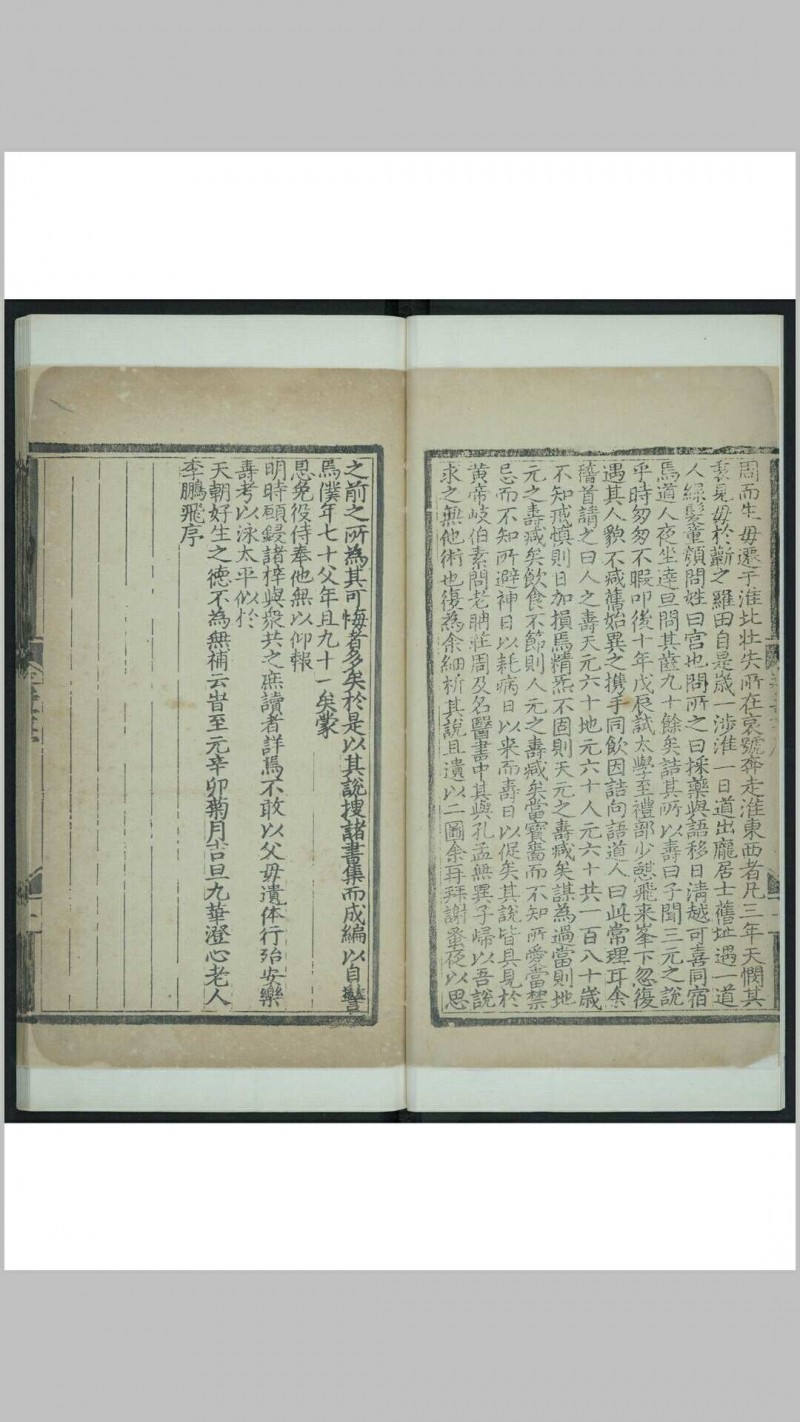 周而生母遷于淮比壮失所在哀號奔走淮東西者凡三年天憫其
衷見母於蘄之羅田自是歲一涉淮一日道出龐居士舊址遇一道
人綠髮童顏問姓曰宮也問所之曰採藥與語移日清越可喜同宿
焉道人夜坐達旦問其齒九十餘矣詰其所以壽曰子聞三元之說
乎時匆匆不暇叩後十年戊辰試太學至禮部少憇飛来峯下忽復
遇其人貌不减舊始異之携手同飲因詰向語道人曰此常理耳余
稽首請之曰人之壽天元六十地元六十人元六十共一百八十歲
不知戒慎則日加損焉精炁不固則天元之壽减矣謀為過當則地
元之壽减矣飲食不節則人元之壽减矣當寳嗇而不知所愛當禁
忌而不知所避神日以耗病日以来而壽日以促矣其說皆具見於
黄帝岐伯素問老聃莊周及名醫書中其與孔孟無異子歸以吾說
求之無他術也復為余細析其說且遺以二圖余再拜謝蚤夜以思
之前之所為其可悔者多矣於是以其說搜諸書集而成編以自警
焉僕年七十父年且九十一矣蒙
恩免役侍奉他無以仰報
明時願鋟諸梓與衆共之庶讀者詳焉不敢以父母遺体行殆安樂
壽考以泳太平似於
天朝好生之德不為無補云旹至元辛卯菊月吉旦九華澄心老人
李鵬飛序